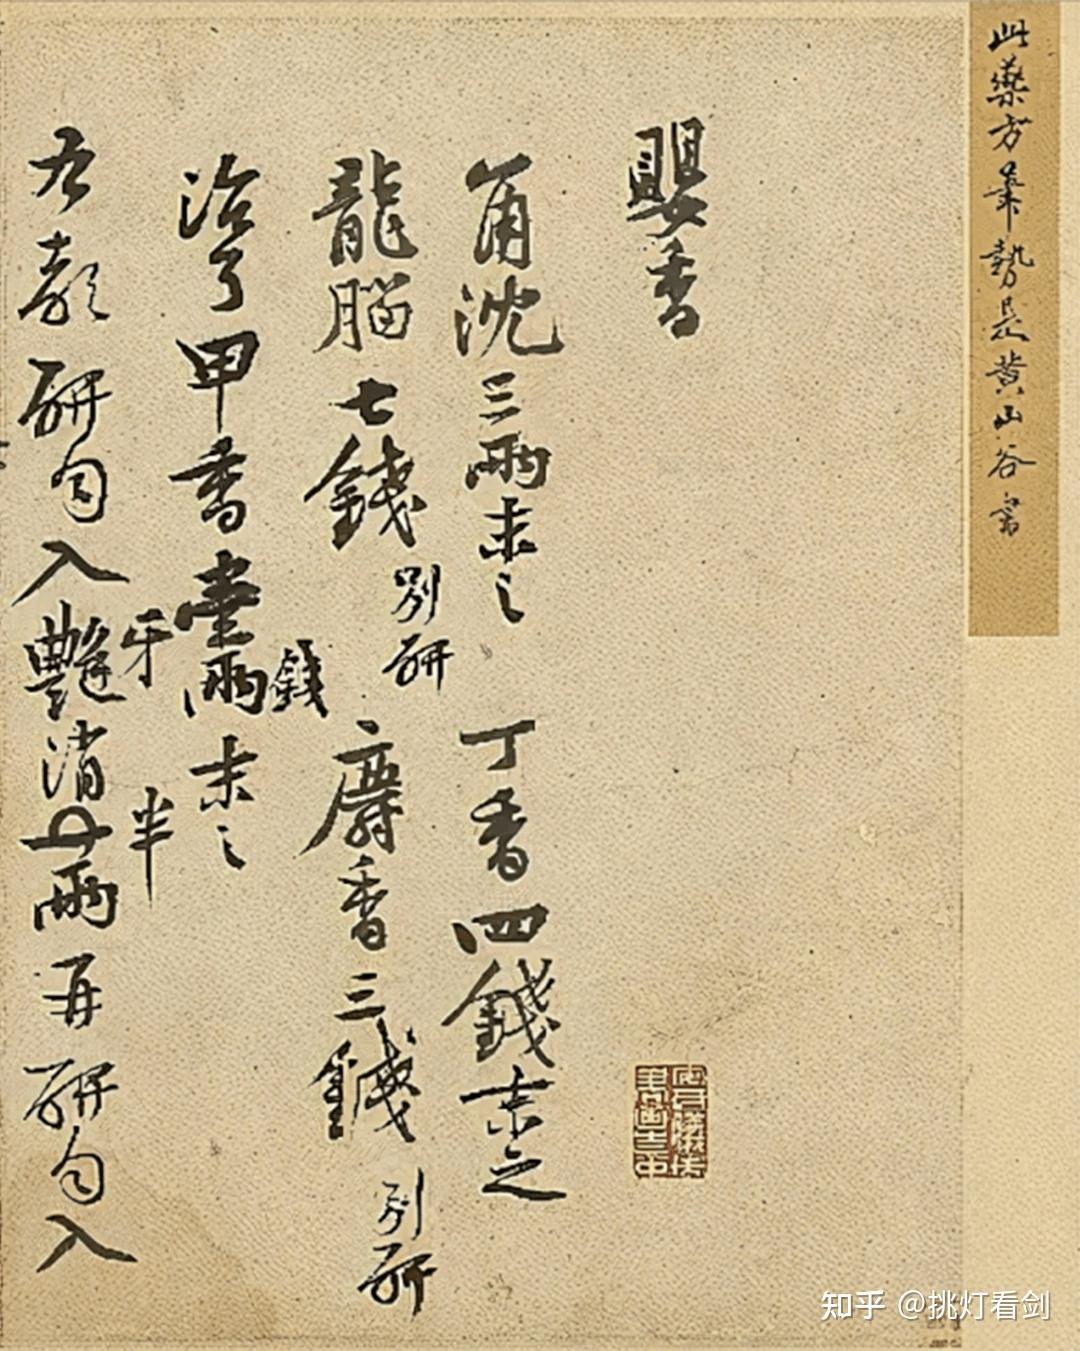 此藥方筆勢是黄山谷書
嬰香
角沈三兩末之 丁香四錢末之
龍腦七錢別研 麝香三錢別研
治了甲香壹兩錢末之
右都研勻入艷消半兩再研勻入
牙
知乎 @挑灯看剑